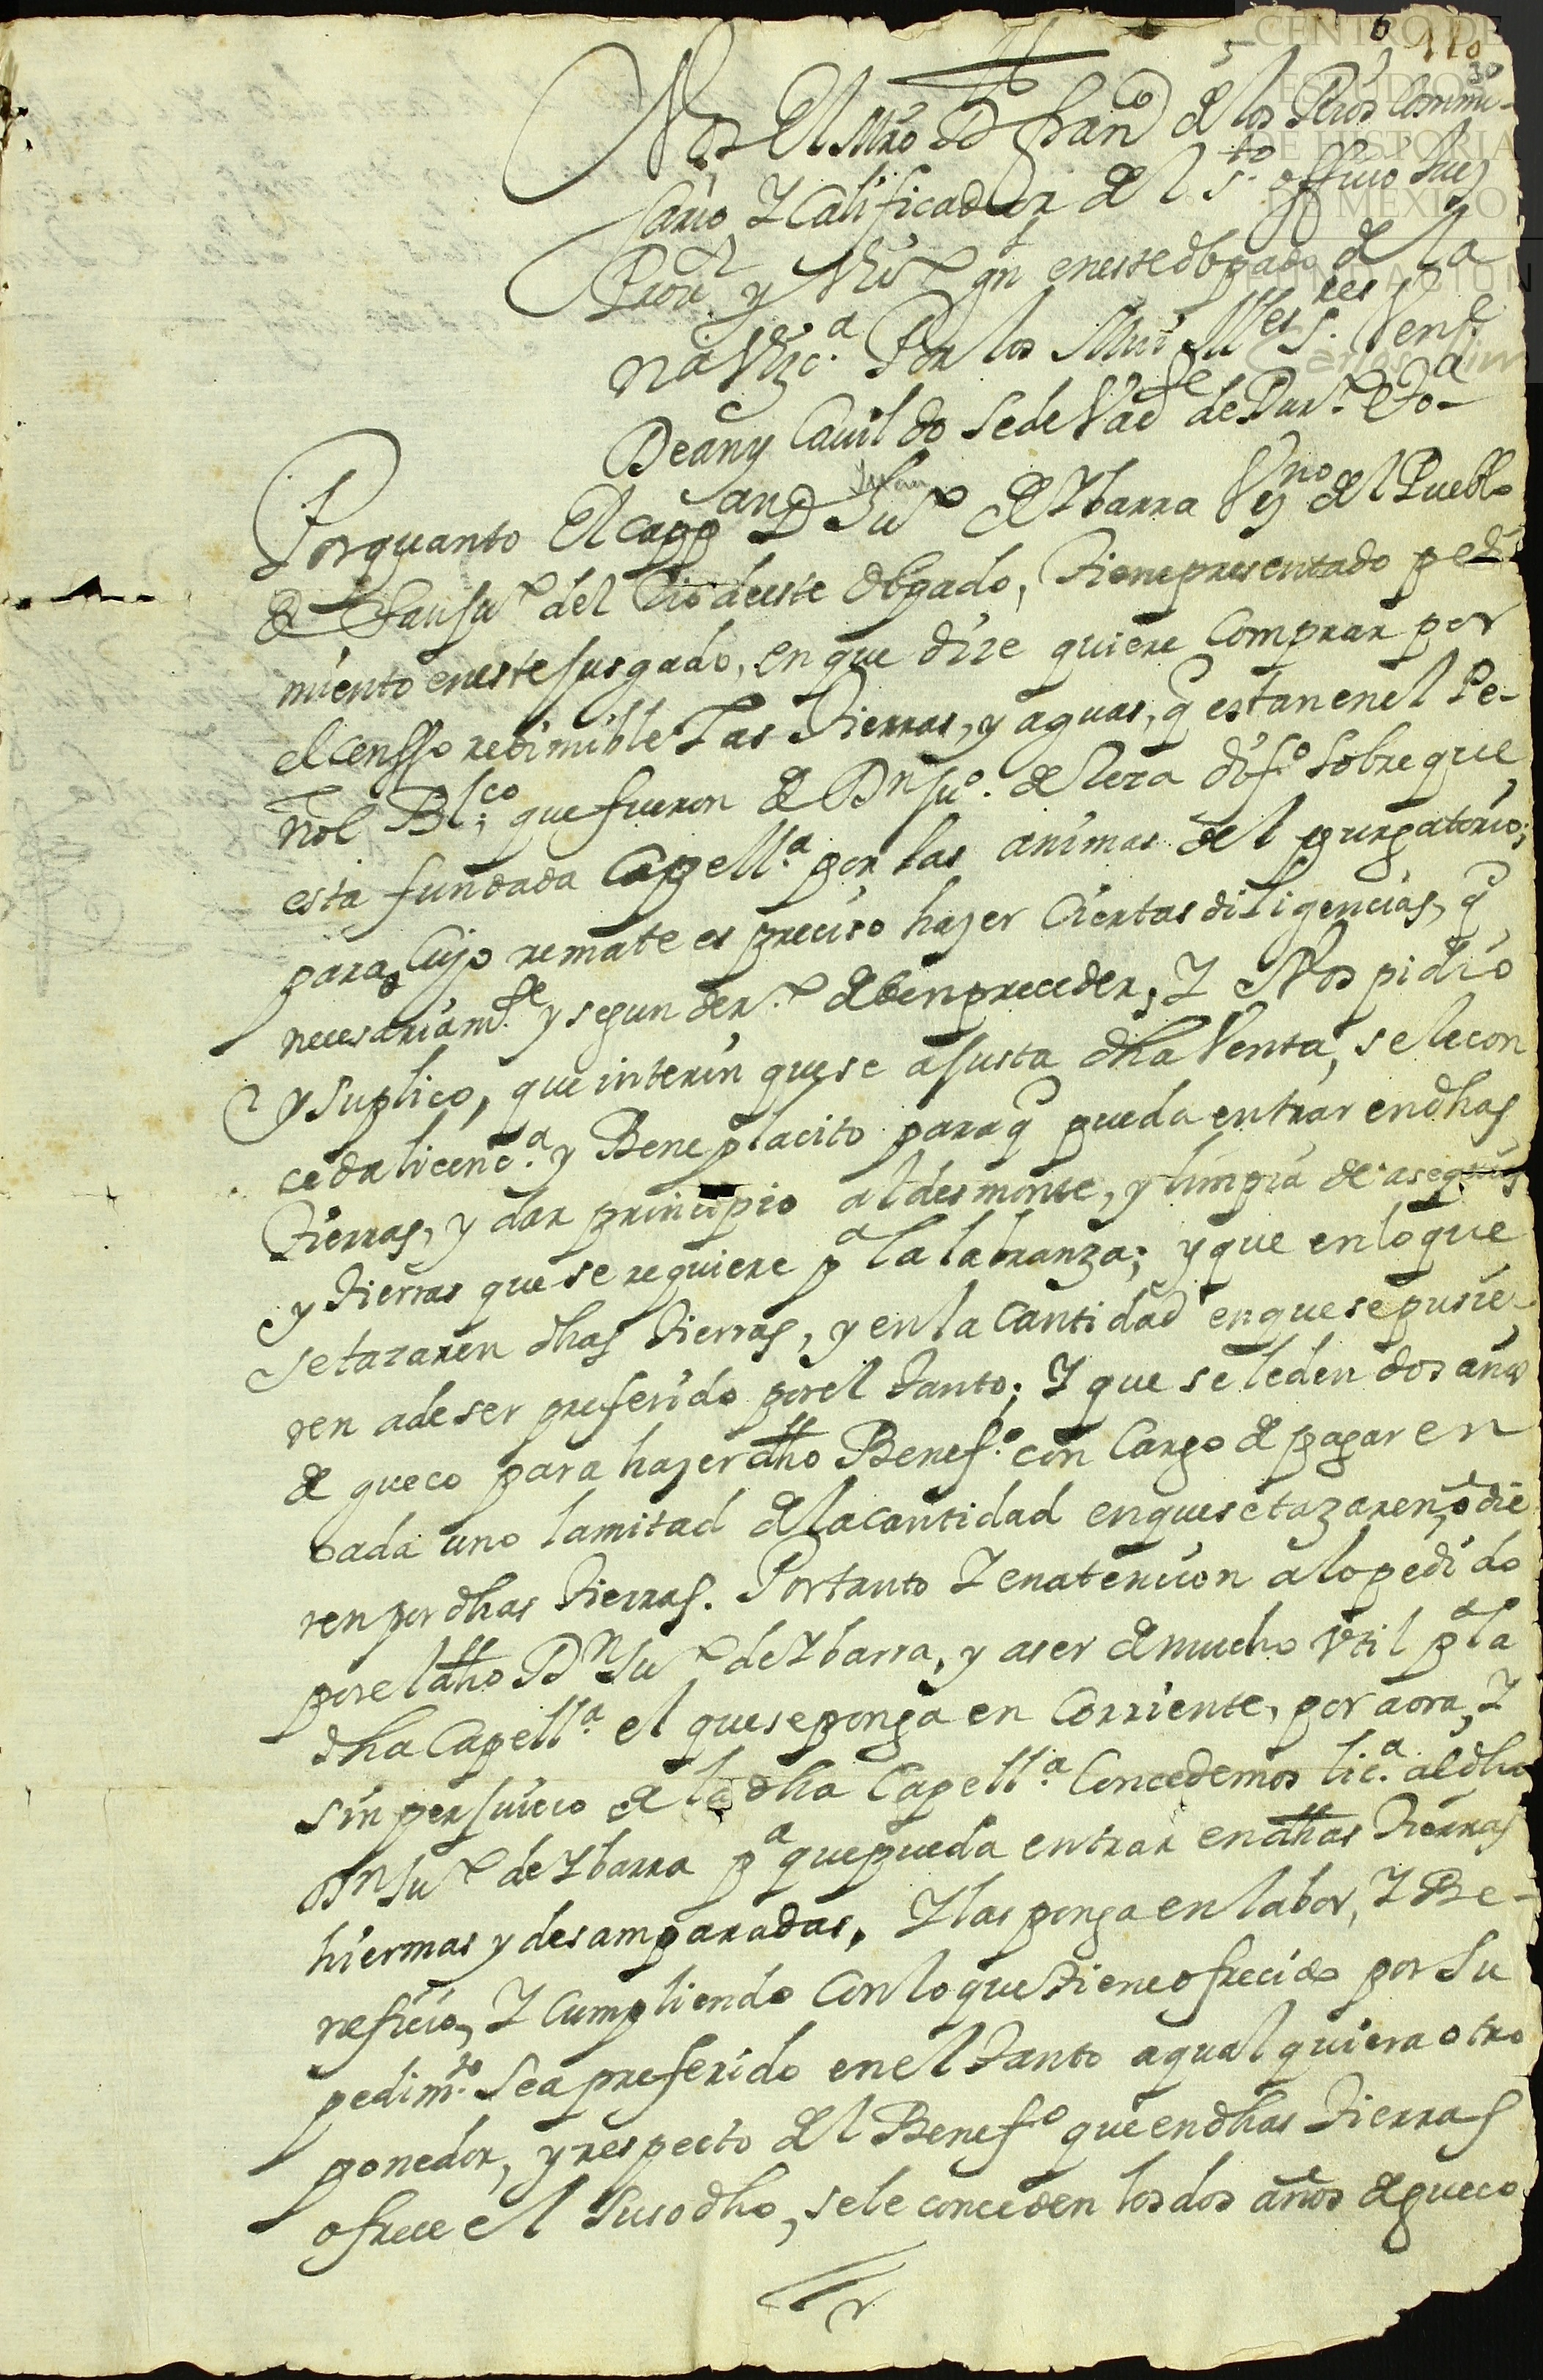 CENTRO DE
ESTUDIOS
DE HISTORIA
DE MÉXICO
FUNDACIÓN
Carlos Slim
6 110
Nos El Mro D Fran^co de los Rios Commi-
sario Y Calificador del S^to officio Juez
Prov^r y Vic^o gn^l en este obpado de la
na Vizc^a. Por los Mui Ill^es S^res Ven^e
Dean y Cavildo Sede Vac^te de Dur^o &^a-
Juan
Porquanto El cap^an D Ju^o de Ybarra Vz^no del Pueblo
de San Ju^o del Rio deeste obpado, tiene presentado pedi
miento eneste Jusgado, en que dize quiere Comprar por
el censso redimible Las tierras, y aguas, q estan en el Pe-
ñol Bl^co; que fueron de Dn Ju^o. de Lera dif^o. sobre que
esta fundada Capell^a por las animas del purgatorio;
para Cujo remate es preciso hazer Ciertas diligencias, q
necesariam^te y segun der^o deben preceder, Y Nos pidio
y suplico, que interin que se ajusta dha Venta, se le con
ceda licenc^a y Beneplacito para q pueda entrar en dhas
tierras, y dar principio al desmonte, y limpia de asequias
y tierras que se requiere p^a la labranza; y que en lo que
se tazaren dhas tierras, y en la Cantidad en que se pusie-
ren a de ser preferido por el tanto; Y que se le den dos años
de gueco para hazer dho Benef^o con Cargo de pagar en
cada uno la mitad de la cantidad en que se tazaren, o die
ren por dhas tierras. Por tanto Y en atencion a lo pedido
por el dho Dn Ju^o de Ybarra, y a ser de mucho Vtil p^a la
dha Capell^a el que se ponga en Corriente, por aora, Y
sin perjuicio de la dha Capell^a Concedemos lic^a al dho
Dn Ju^o de Ybarra p^a que pueda entrar en dhas tierras
hiermas y desamparadas, Y las ponga en labor, Y Be-
neficio, Y Cumpliendo Con lo que tiene ofrecido por Su
pedim^to Sea preferido en el tanto a qualquiera otro
ponedor, y respecto del Benef^o que en dhas tierras
ofrece el Susodho, se le conceden los dos años de gueco